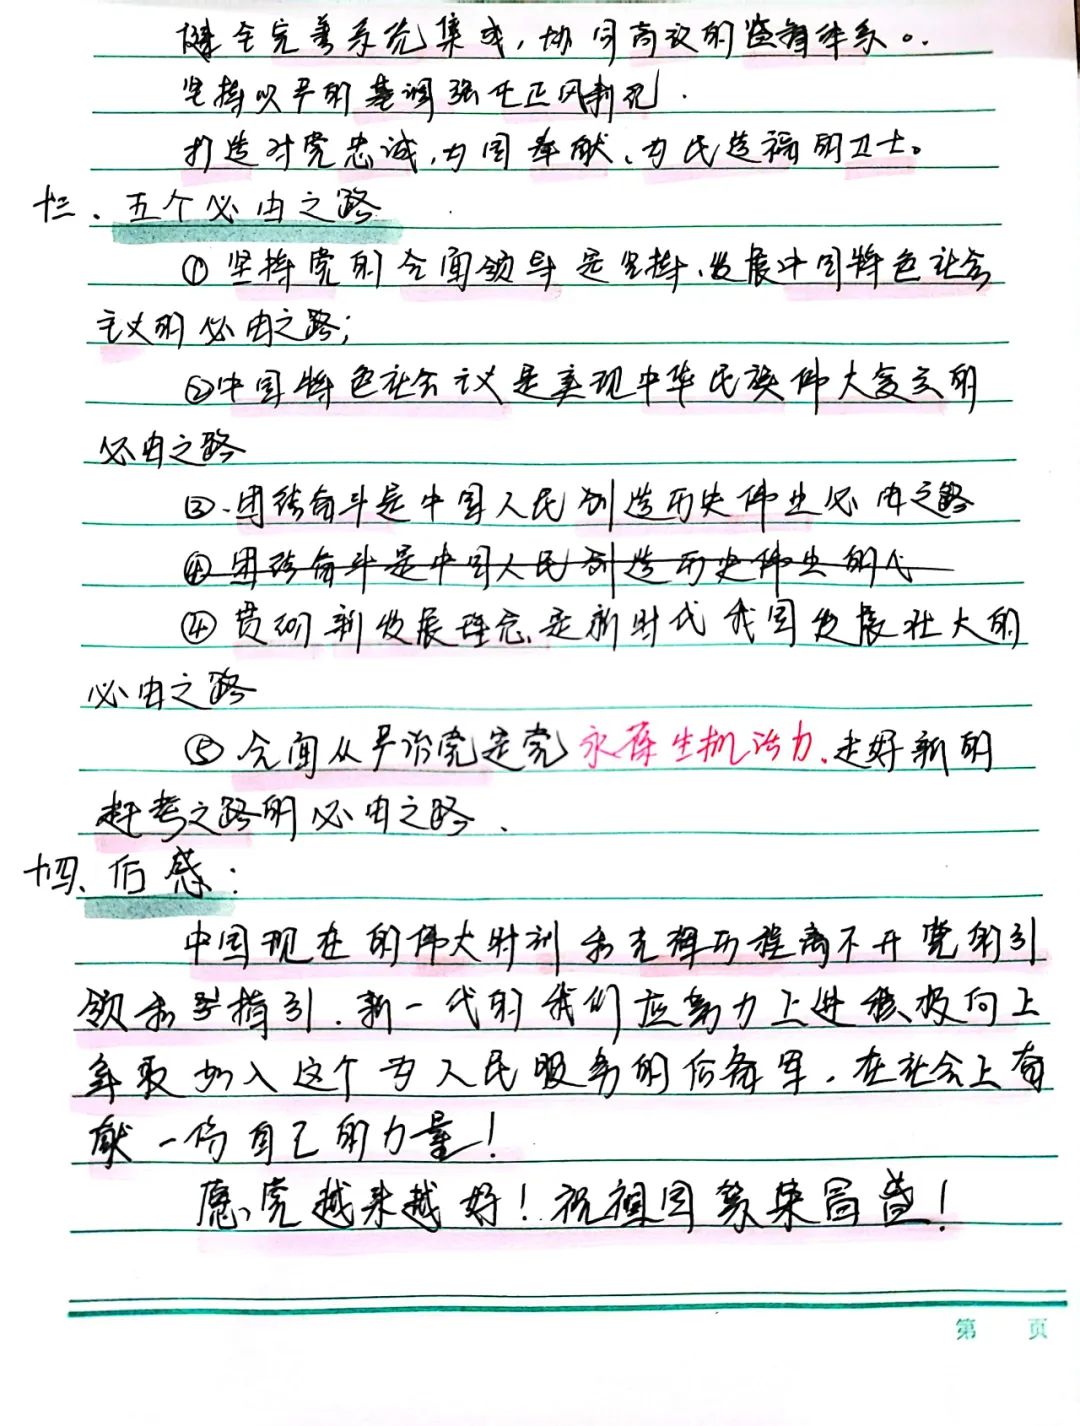 健全完善系统集成，协同高效的监督体系。
坚持以严的基调强化正风肃纪.
打造对党忠诚、为国奉献、为民造福的卫士。
十三、五个必由之路
①坚持党的全面领导是坚持、发展中国特色社会
主义的必由之路；
②中国特色社会主义是实现中华民族伟大复兴的
必由之路
③.团结奋斗是中国人民创造历史伟业必由之路
④团结奋斗是中国人民创造历史伟业的
④贯彻新发展理念是新时代我国发展壮大的
必由之路
⑤全面从严治党是党永葆生机活力、走好新的
赶考之路的必由之路、
十四、后感：
中国现在的伟大时刻和光辉历程离不开党的引
领和指引.新一代的我们应努力上进积极向上
争取加入这个为人民服务的后备军，在社会上奉
献一份自己的力量！
愿党越来越好！祝祖国繁荣昌盛！
第 页